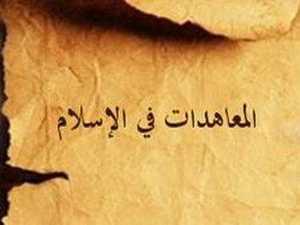 المعاهدات في الإسلام